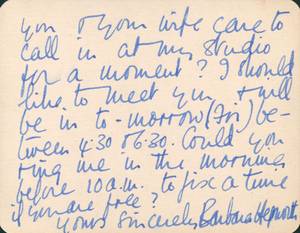 you & your wife care to
call in at my studio
for a moment? I should
like to meet you & will
be in to-morrow (Fri) be-
tween 4.30 & 6.30. Could you
ring me in the morning
before 10 a.m. to fix a time
if you are free?
Yours sincerely Barbara Hepworth